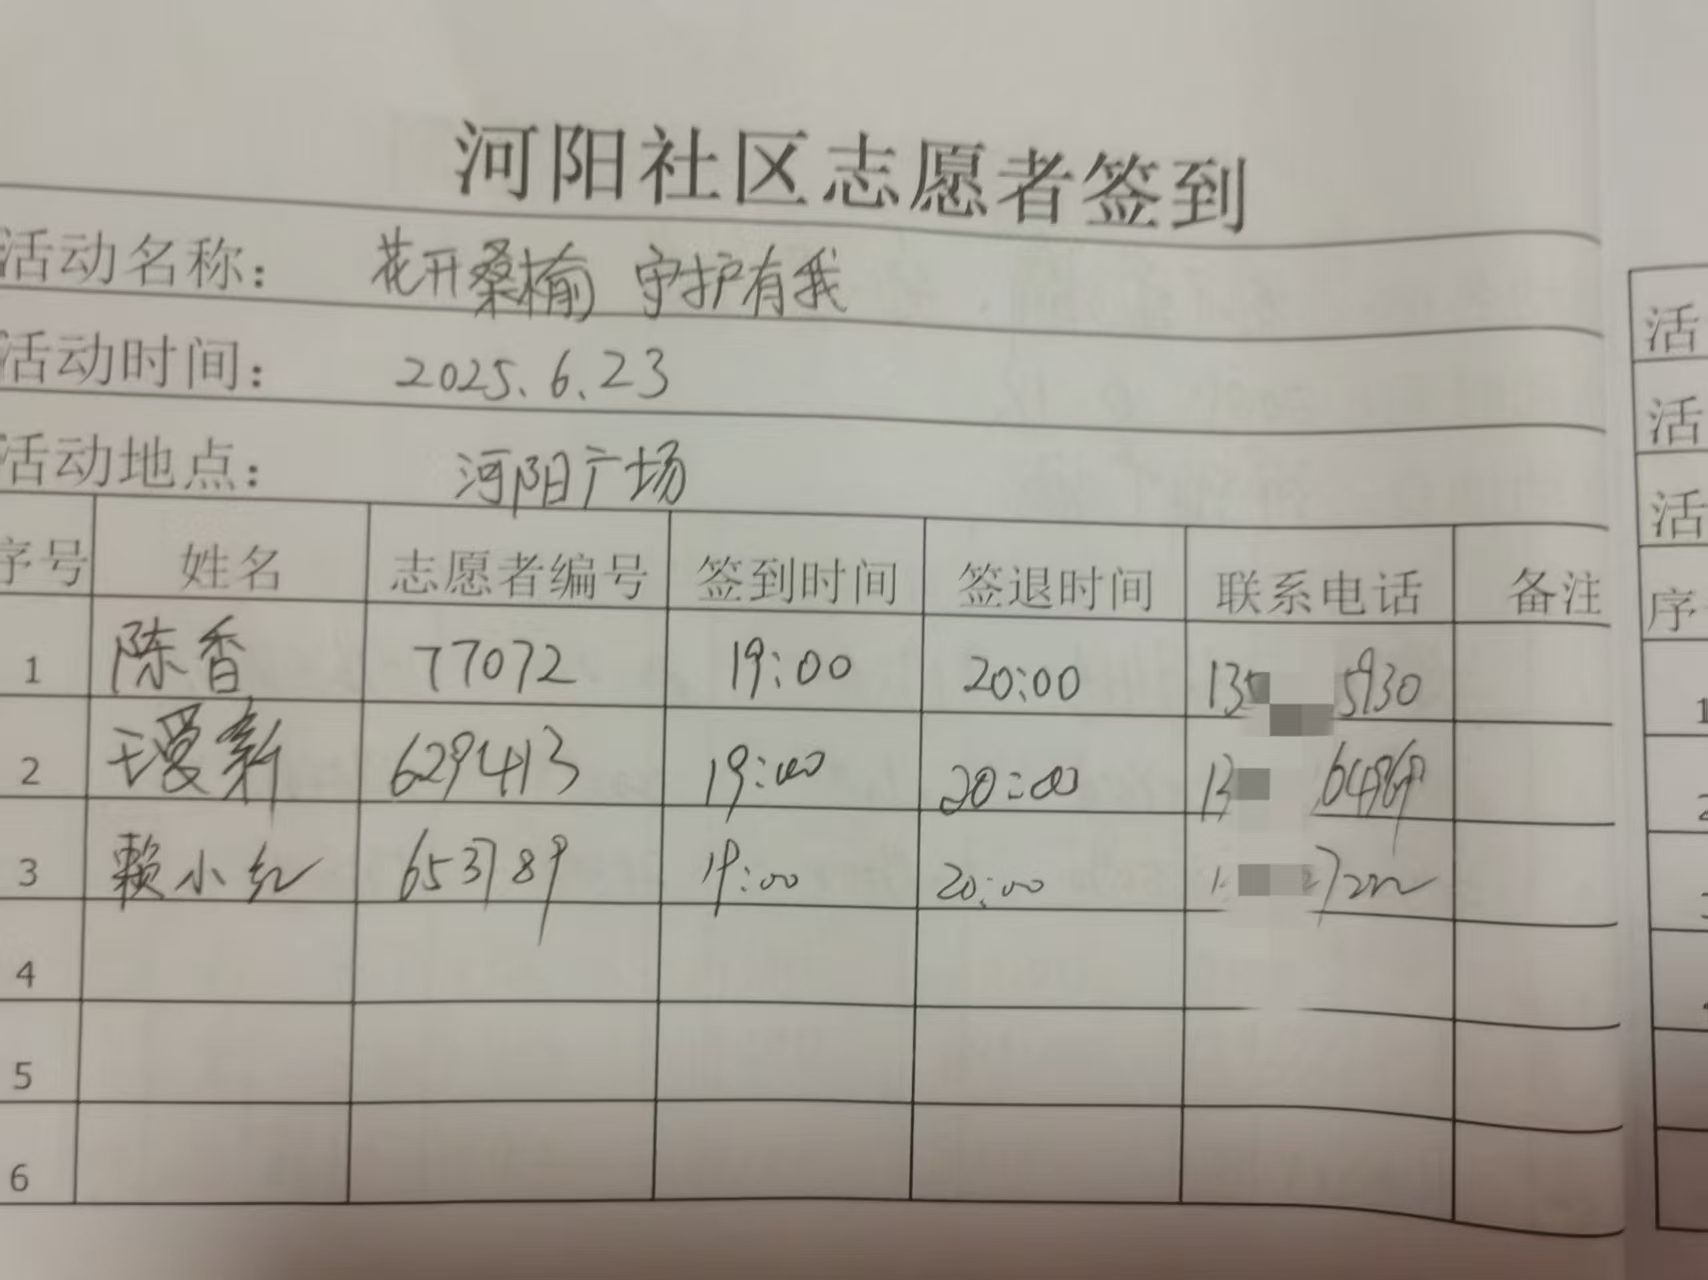 河阳社区志愿者签到
活动名称： 花开桑榆 守护有我
活动时间： 2025.6.23
活动地点： 河阳广场
序号 姓名 志愿者编号 签到时间 签退时间 联系电话 备注
1 陈香 77072 19:00 20:00 135 5930
2 王爱新 629413 19:00 20:00 13
3 赖小红 653789 19:00 20:00
4
5
6
活
活
活
序